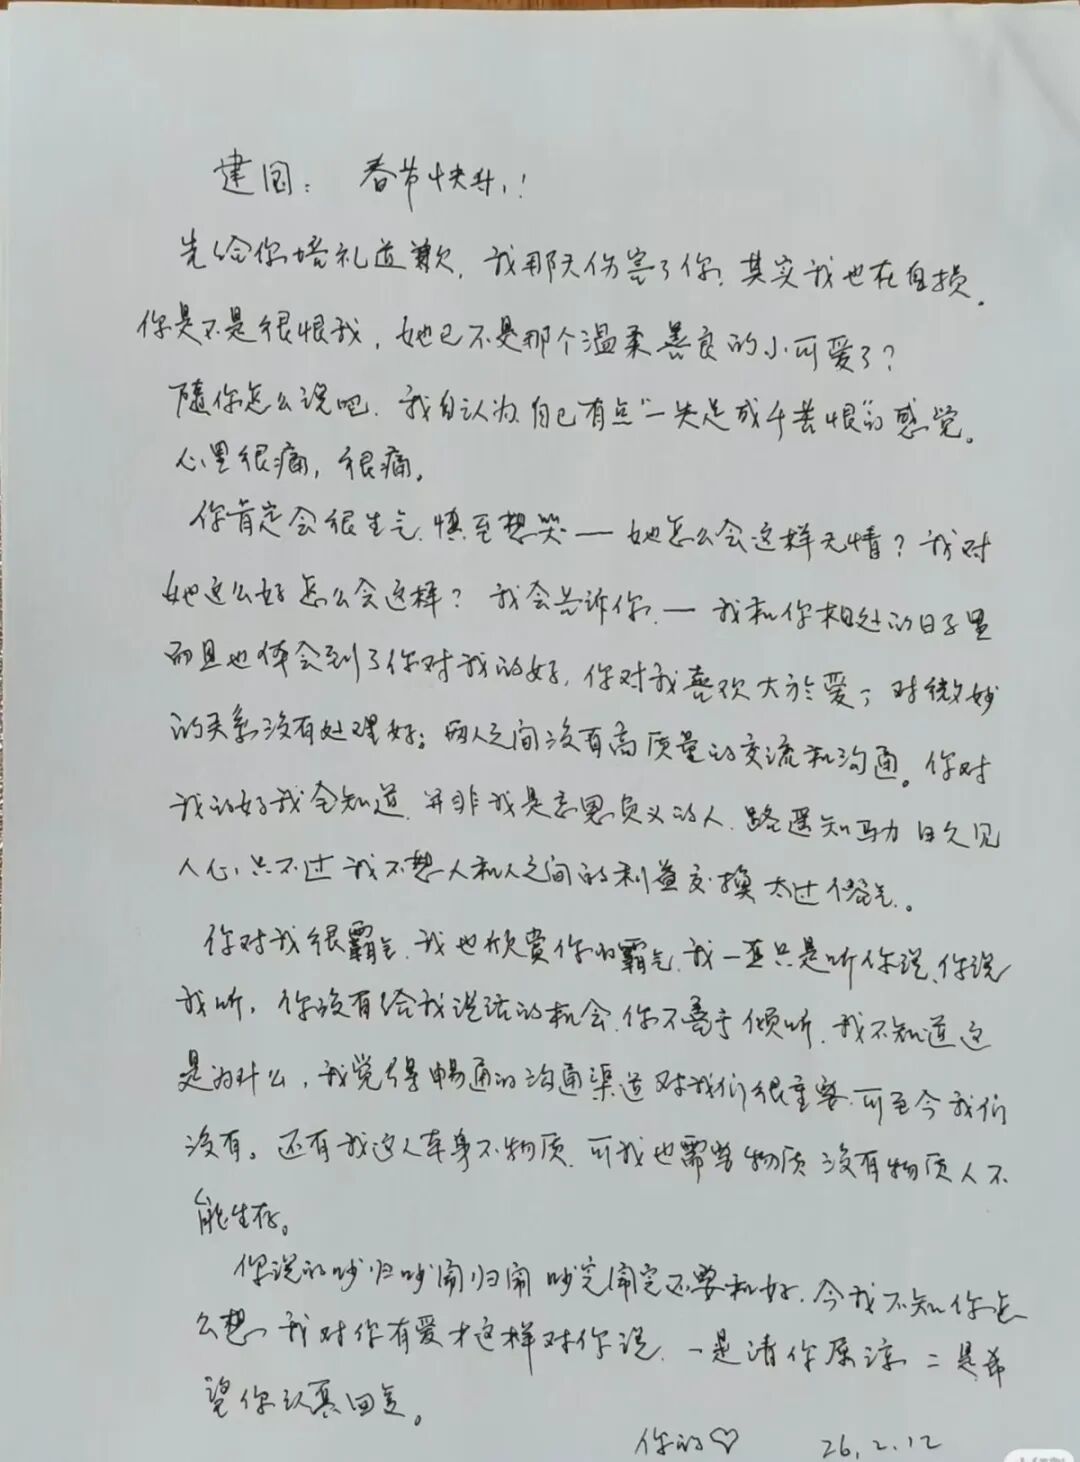 建国：春节快乐！
先给你培礼道歉，我那天伤害了你，其实我也在自损。
你是不是很恨我，她已不是那个温柔善良的小可爱了？
随你怎么说吧，我自认为自己有点"一失足成千苦恨"的感觉。
心里很痛，很痛。
你肯定会很生气，慎至想哭—她怎么会这样无情？我对
她这么好怎么会这样？我会告诉你—我和你相处的日子里
而且也体会到了你对我的好，你对我喜欢大於爱，对微妙
的关系没有处理好；两人之间没有高质量的交流和沟通。你对
我的好我全知道，并非我是忘恩负义的人，路遥知马力日久见
人心，只不过我不想人和人之间的利益交换太过俗气。
你对我很霸气，我也欣赏你的霸气，我一直只是听你说、你说
我听，你没有给我说话的机会，你不善于倾听，我不知道这
是为什么，我觉得畅通的沟通渠道对我们很重要，可至今我们
没有。还有我这人本身不物质，可我也需要物质没有物质人不
能生存。
你说的吵归吵闹归闹吵完闹完还要和好，今我不知你怎
么想，我对你有爱才这样对你说，一是请你原谅二是希
望你认真回复。
你的♡ 26.2.12